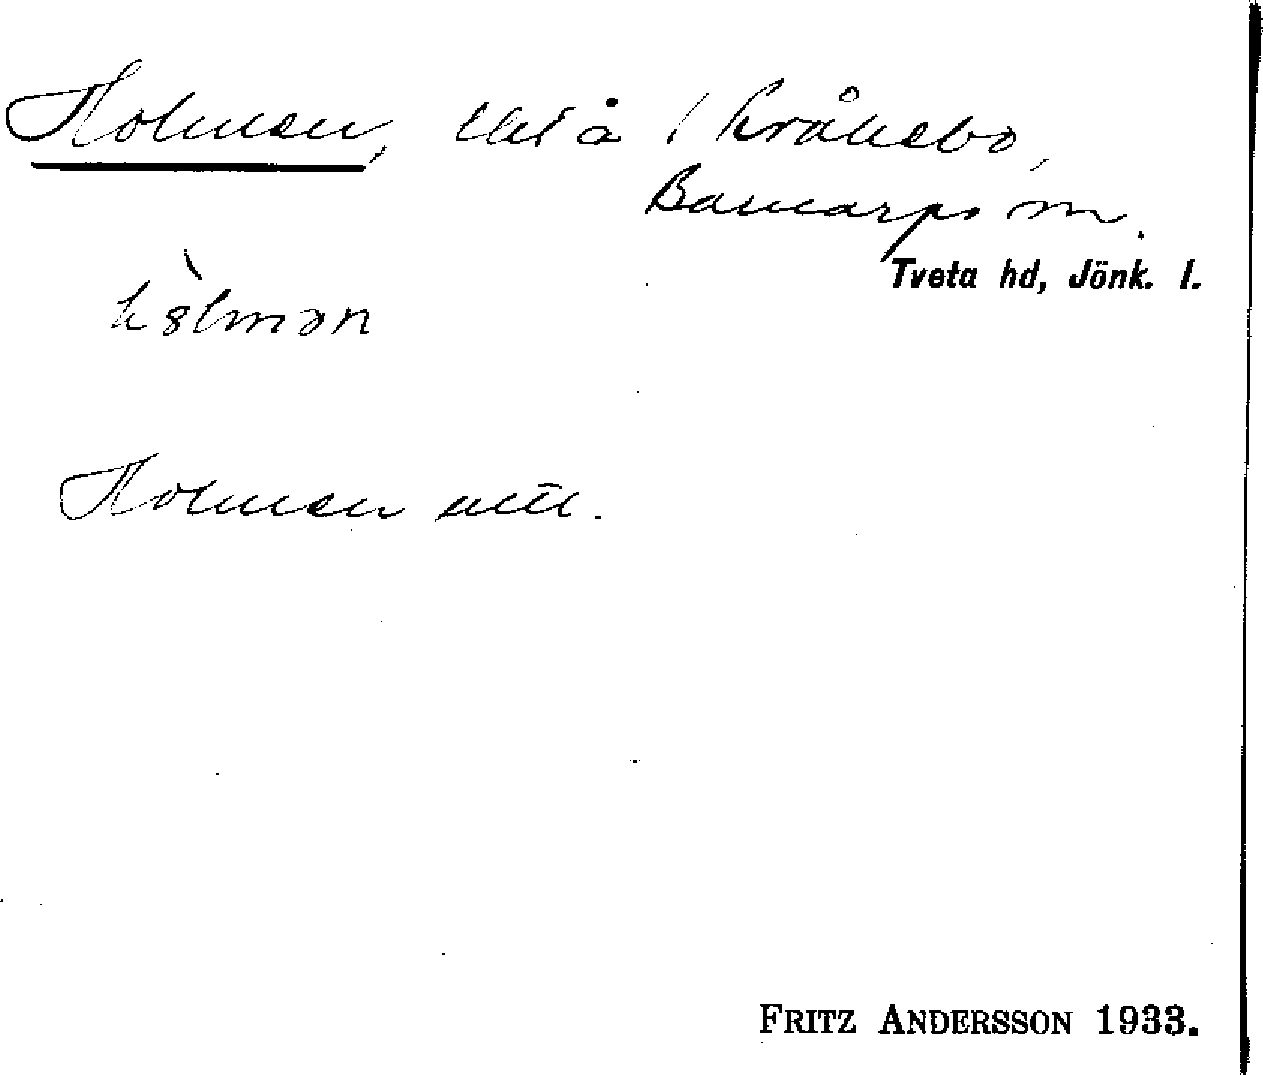 Holmen, lht å 1 Kråkebo,
Barnarps sn.
Tveta hd, Jönk. l.
hòlmən
Holmen
FRITZ ANDERSSON 1933.